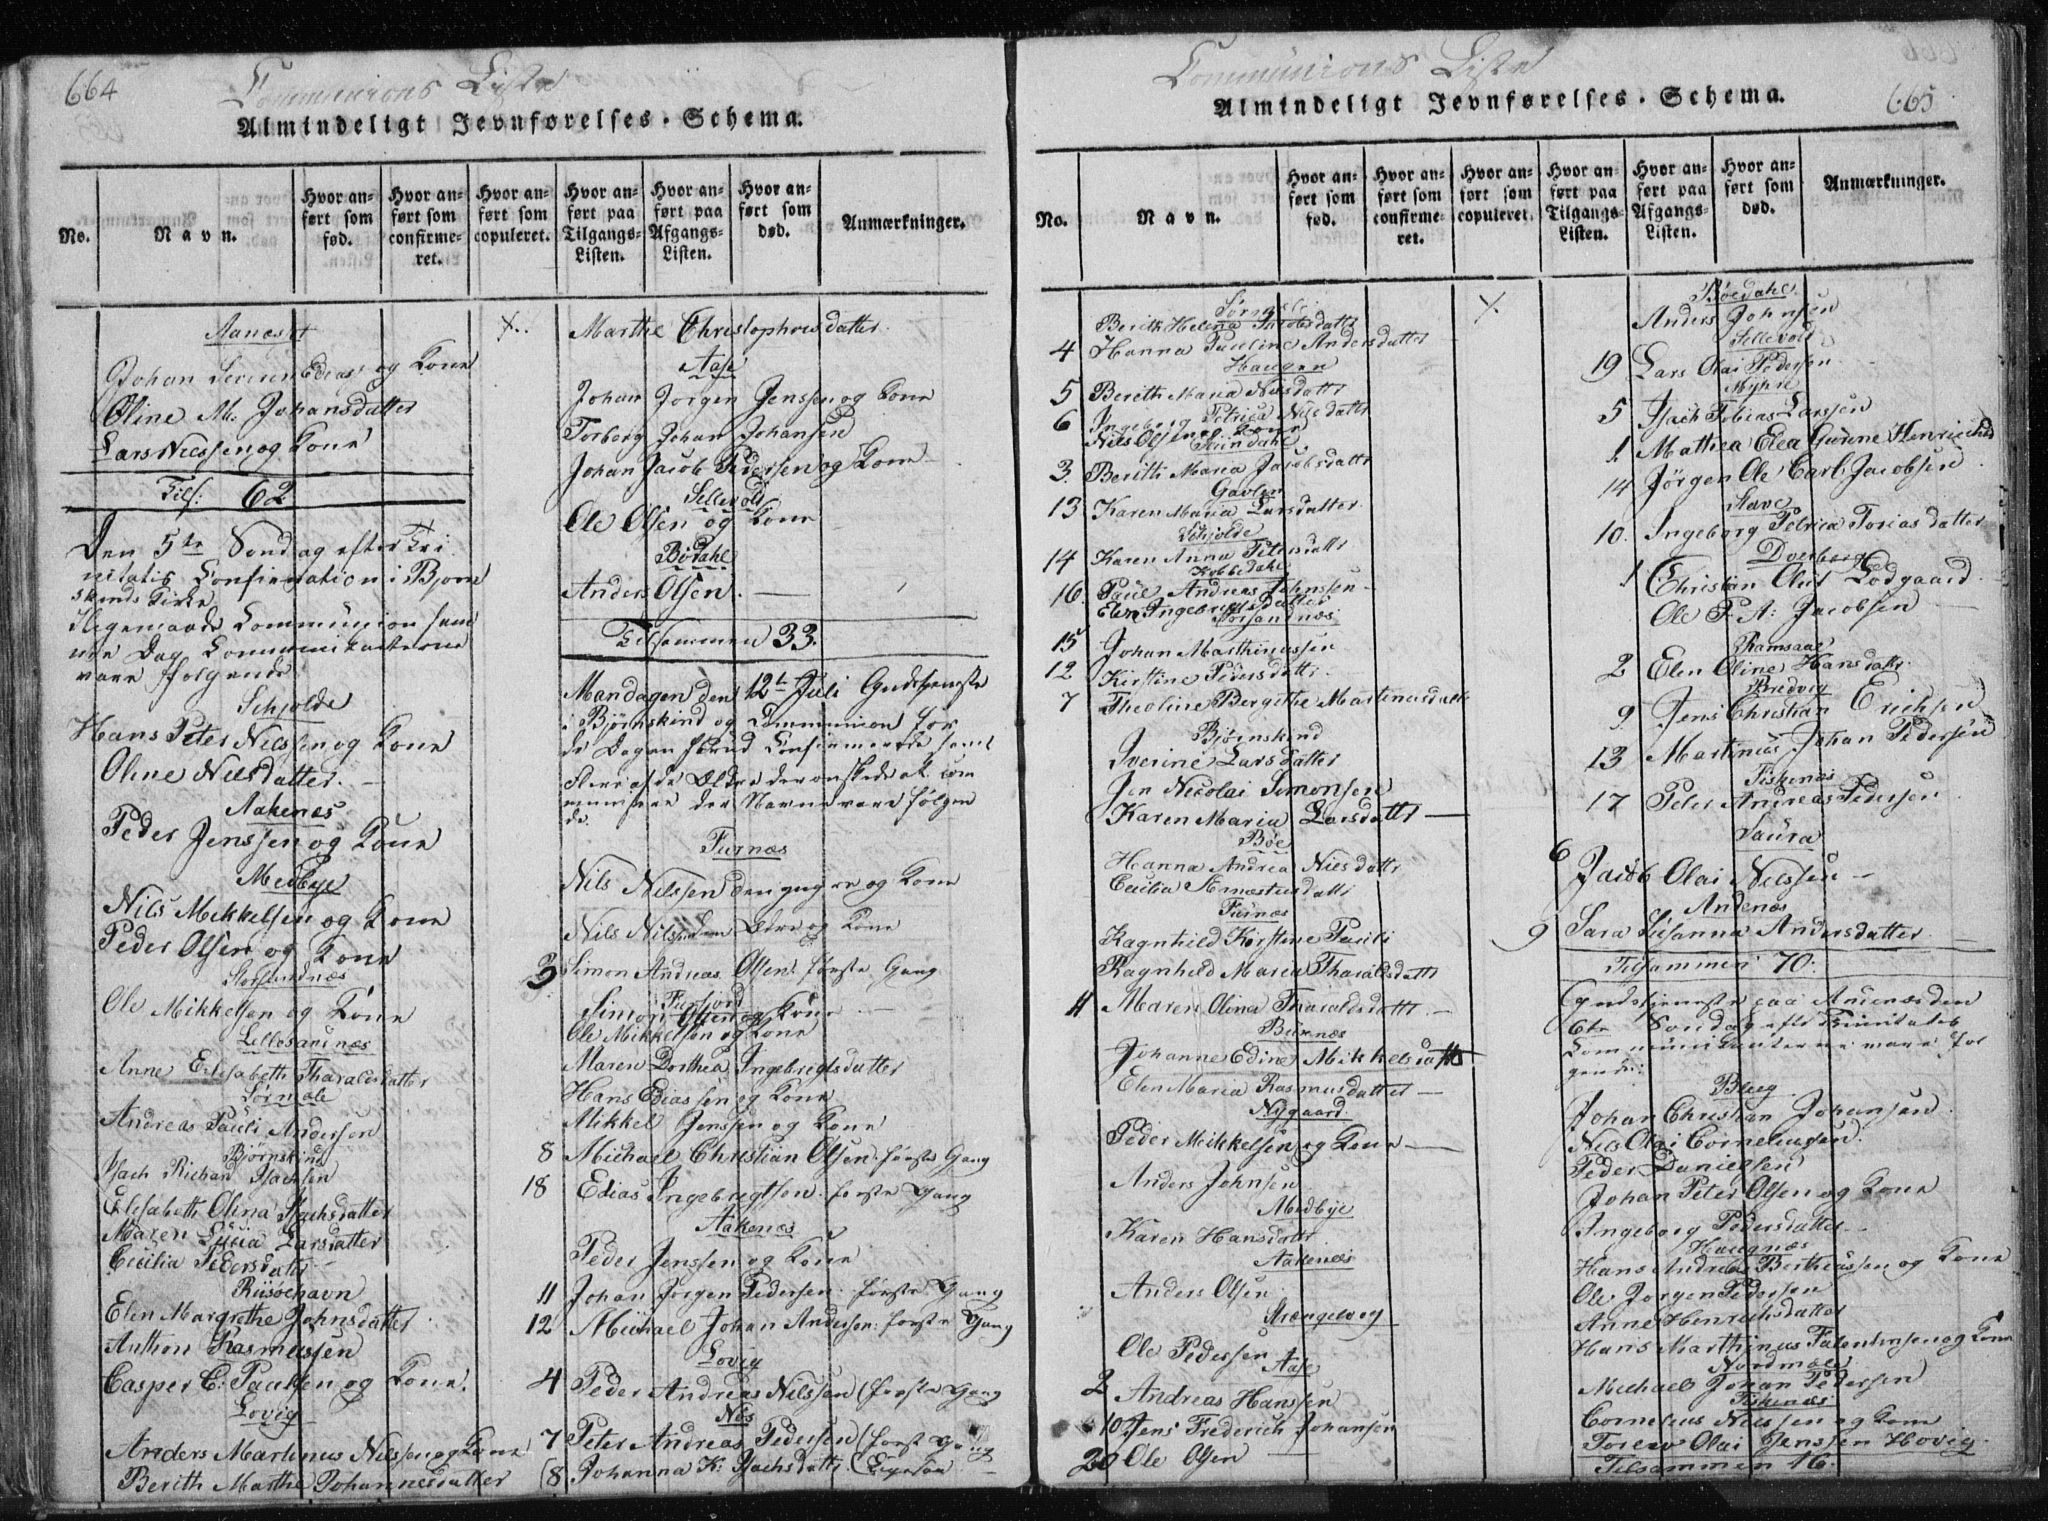 664
Communions Liste
Almindeligt Jevnførelses-Schema.
No.
Navn.
Hvor anført som fød.
Hvor anført som confirmeret.
Hvor anført som copuleret.
Hvor anført paa Tilgangs-Listen.
Hvor anført paa Afgangs-Listen.
Hvor anført som død.
Anmærkninger.
Aanæs
Johan Serenus Edias og Kone
Oline M. Johansdatter
Lars Nielsen og Kone
Tils: 62
Den 5te Søndag efter Tri
nitatis Confirmation i Bjørn
skinds Kirke
Communion sam
me Dag Communikanterne
vare følgende
Schjolde
Hans Peter Nilssen og Kone
Oline Nilsdatter
Aakenæs
Peder Jenssen og Kone
Medbye
Nils Mikkelsen og Kone
Peder Olsen og Kone
Storsandnæs
Ole Mikkelsen og Kone
Lillesandnæs
Anne Elisabeth Tharaldsdatter
Sørmæle
Andreas Pauli Andersen
Bjørnskind
Isach Richard Isachsen
Elisabeth Olina Isachsdatter
Maren Lysia Larsdatter
Cecilia Pedersdatter
Riisøehavn
Elen Margrethe Johnsdatter
Anthon Rasmussen
Casper C. Paulsen og Kone
Lovig
Anders Martinus Nilssen og Kone
Berith Marthe Johannesdatter
Marthe Christophersdatter
Aase
Johan Jørgen Jenssen og Kone
Torberg Johan Johansen
Johan Jacob Pedersen og Kone
Sellevold
Ole Olsen og Kone
Bødahl
Anders Olsen
Tilsammen 33.
Mandagen den 12te Juli Gudstjeneste
i Bjørnskind og Communion for
de Dagen forud Confirmerede samt
flere af de Ældre der ønskede at com
municere der Navne vare følgen
de.
Furnæs
Nils Nilssen den yngre og Kone
Nils Nilssen den Ældre og Kone
3 Simon Andreas Olsen første Gang
Furfjord
Simon Olsen og Kone
Ole Mikkelsen og Kone
Maren Dorthea Ingebrigtsdatter
Hans Ediassen og Kone
Mikkel Jenssen og Kone
8 Michael Christian Olsen første Gang
18 Edias Ingebrigtsen første Gang
Aakenæs
Peder Jenssen og Kone
11 Johan Jørgen Pedersen første Gang
12 Michael Johan Andersen første Gang
Lovig
4 Peder Andreas Nilssen (første Gang
Nøs
7 Peter Andreas Pedersen (først Gang
(8 Johanna K: Isachsdatter
665
Communions Liste
Almindeligt Jevnførelses-Schema.
No.
Navn.
Hvor anført som fød.
Hvor anført som confirmeret.
Hvor anført som copuleret.
Hvor anført paa Tilgangs-Listen.
Hvor anført paa Afgangs-Listen.
Hvor anført som død.
Anmærkninger.
Berith Helena Jacobsdatter
4 Hanna Pauline Andersdatter
Haugen
5 Berith Maria Nilsdatter
6 Ingeborg Petrica Nilsdatter
Nils Olsen og Kone
3. Berith Maria Jacobsdatter
Gavlen
13 Karen Maria Larsdatter
Schjolde
14 Karen Anna Petersdatter
Kobbedahl
16. Paul Andreas Johnsen
Elen Ingebrigtsdatter
Storsandnæs
15 Johan Marthinussen
12 Kirstine Pedersdatter
7 Theoline Bergithe Martinusdatter
Bjørnskind
Iverine Larsdatter
Jen Nicolai Simonsen
Karen Maria Larsdatter
Bøe
Hanna Andrea Nilsdatter
Cecilia datter
Furnæs
Ragnhild Kirstine Pauli
Ragnhild Maria Tharaldsdatter
11 Maren Olina Tharaldsdatter
Buknæs
Johanne Edine Mikkelsdatter
Elen Maria Rasmusdatter
Nygaard
Peder Mikkelsen og Kone
Anders Johnsen
Medbye
Karen Hansdatter
Aakenæs
Anders Olsen
Strængelvog
Ole Pedersen
Aase
2 Andreas Hanssen
10 Jens Frederich Johansen
20 Ole Olsen
Bøedahl
Anders Johnsen
Sellevold
19 Lars Olai Pedersen
Myhre
5 Isach Tobias Larssen
1 Mathea Elea Gurine Henrichsd
14 Jørgen Ole Carl Jacobsen
Stave
10. Ingeborg Petrica Toriasdatter
Dverberg
1 Christian Olut Lodgaard
Ole P. A: Jacobsen
Ramsaae
2 Elen Oline Hansdatter
Bredvig
9 Jens Christian Erichsen
13 Martinus Johan Pedersen
Fiskenæs
17 Peter Andreas Pedersen
Saura
6 Jacob Olai Nilssen
Andenæs
9 Sara Susanna Andersdatter
Tilsammen 70.
Gudstjeneste paa Andenæs den
6te Søndag efter Trinitatis
Communikanterne vare føl
gende:
Bleeg
Johan Christian Johansen
Nils Olai Corneliussen
Peder Danielsen
Johan Peter Olsen og Kone
Ingeborg Pedersdatter
Haugnæs
Hans Andreas Berthaussen og Kone
Ole Jørgen Pedersen
Anne Henrichsdatter
Hans Marthinus Falentinsen og Kone
Nordmæle
Michael Johan Pedersen
Fiskenæs
Cornelius Nilssen og Kone
Olai Jenssen Hovig
Tilsammen 16.